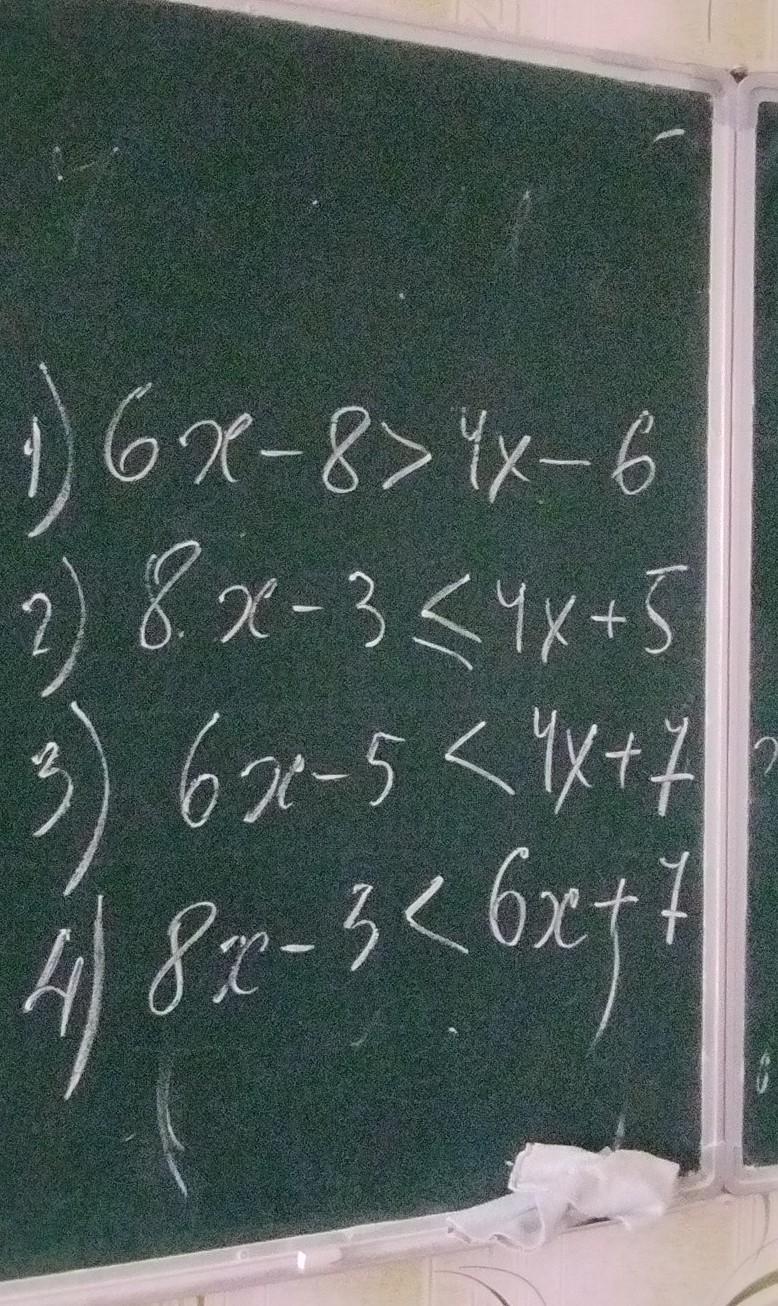 1) 6x-8>4x-6
2) 8x-3≤4x+5
3) 6x-5<4x+7
4) 8x-3<6x+7